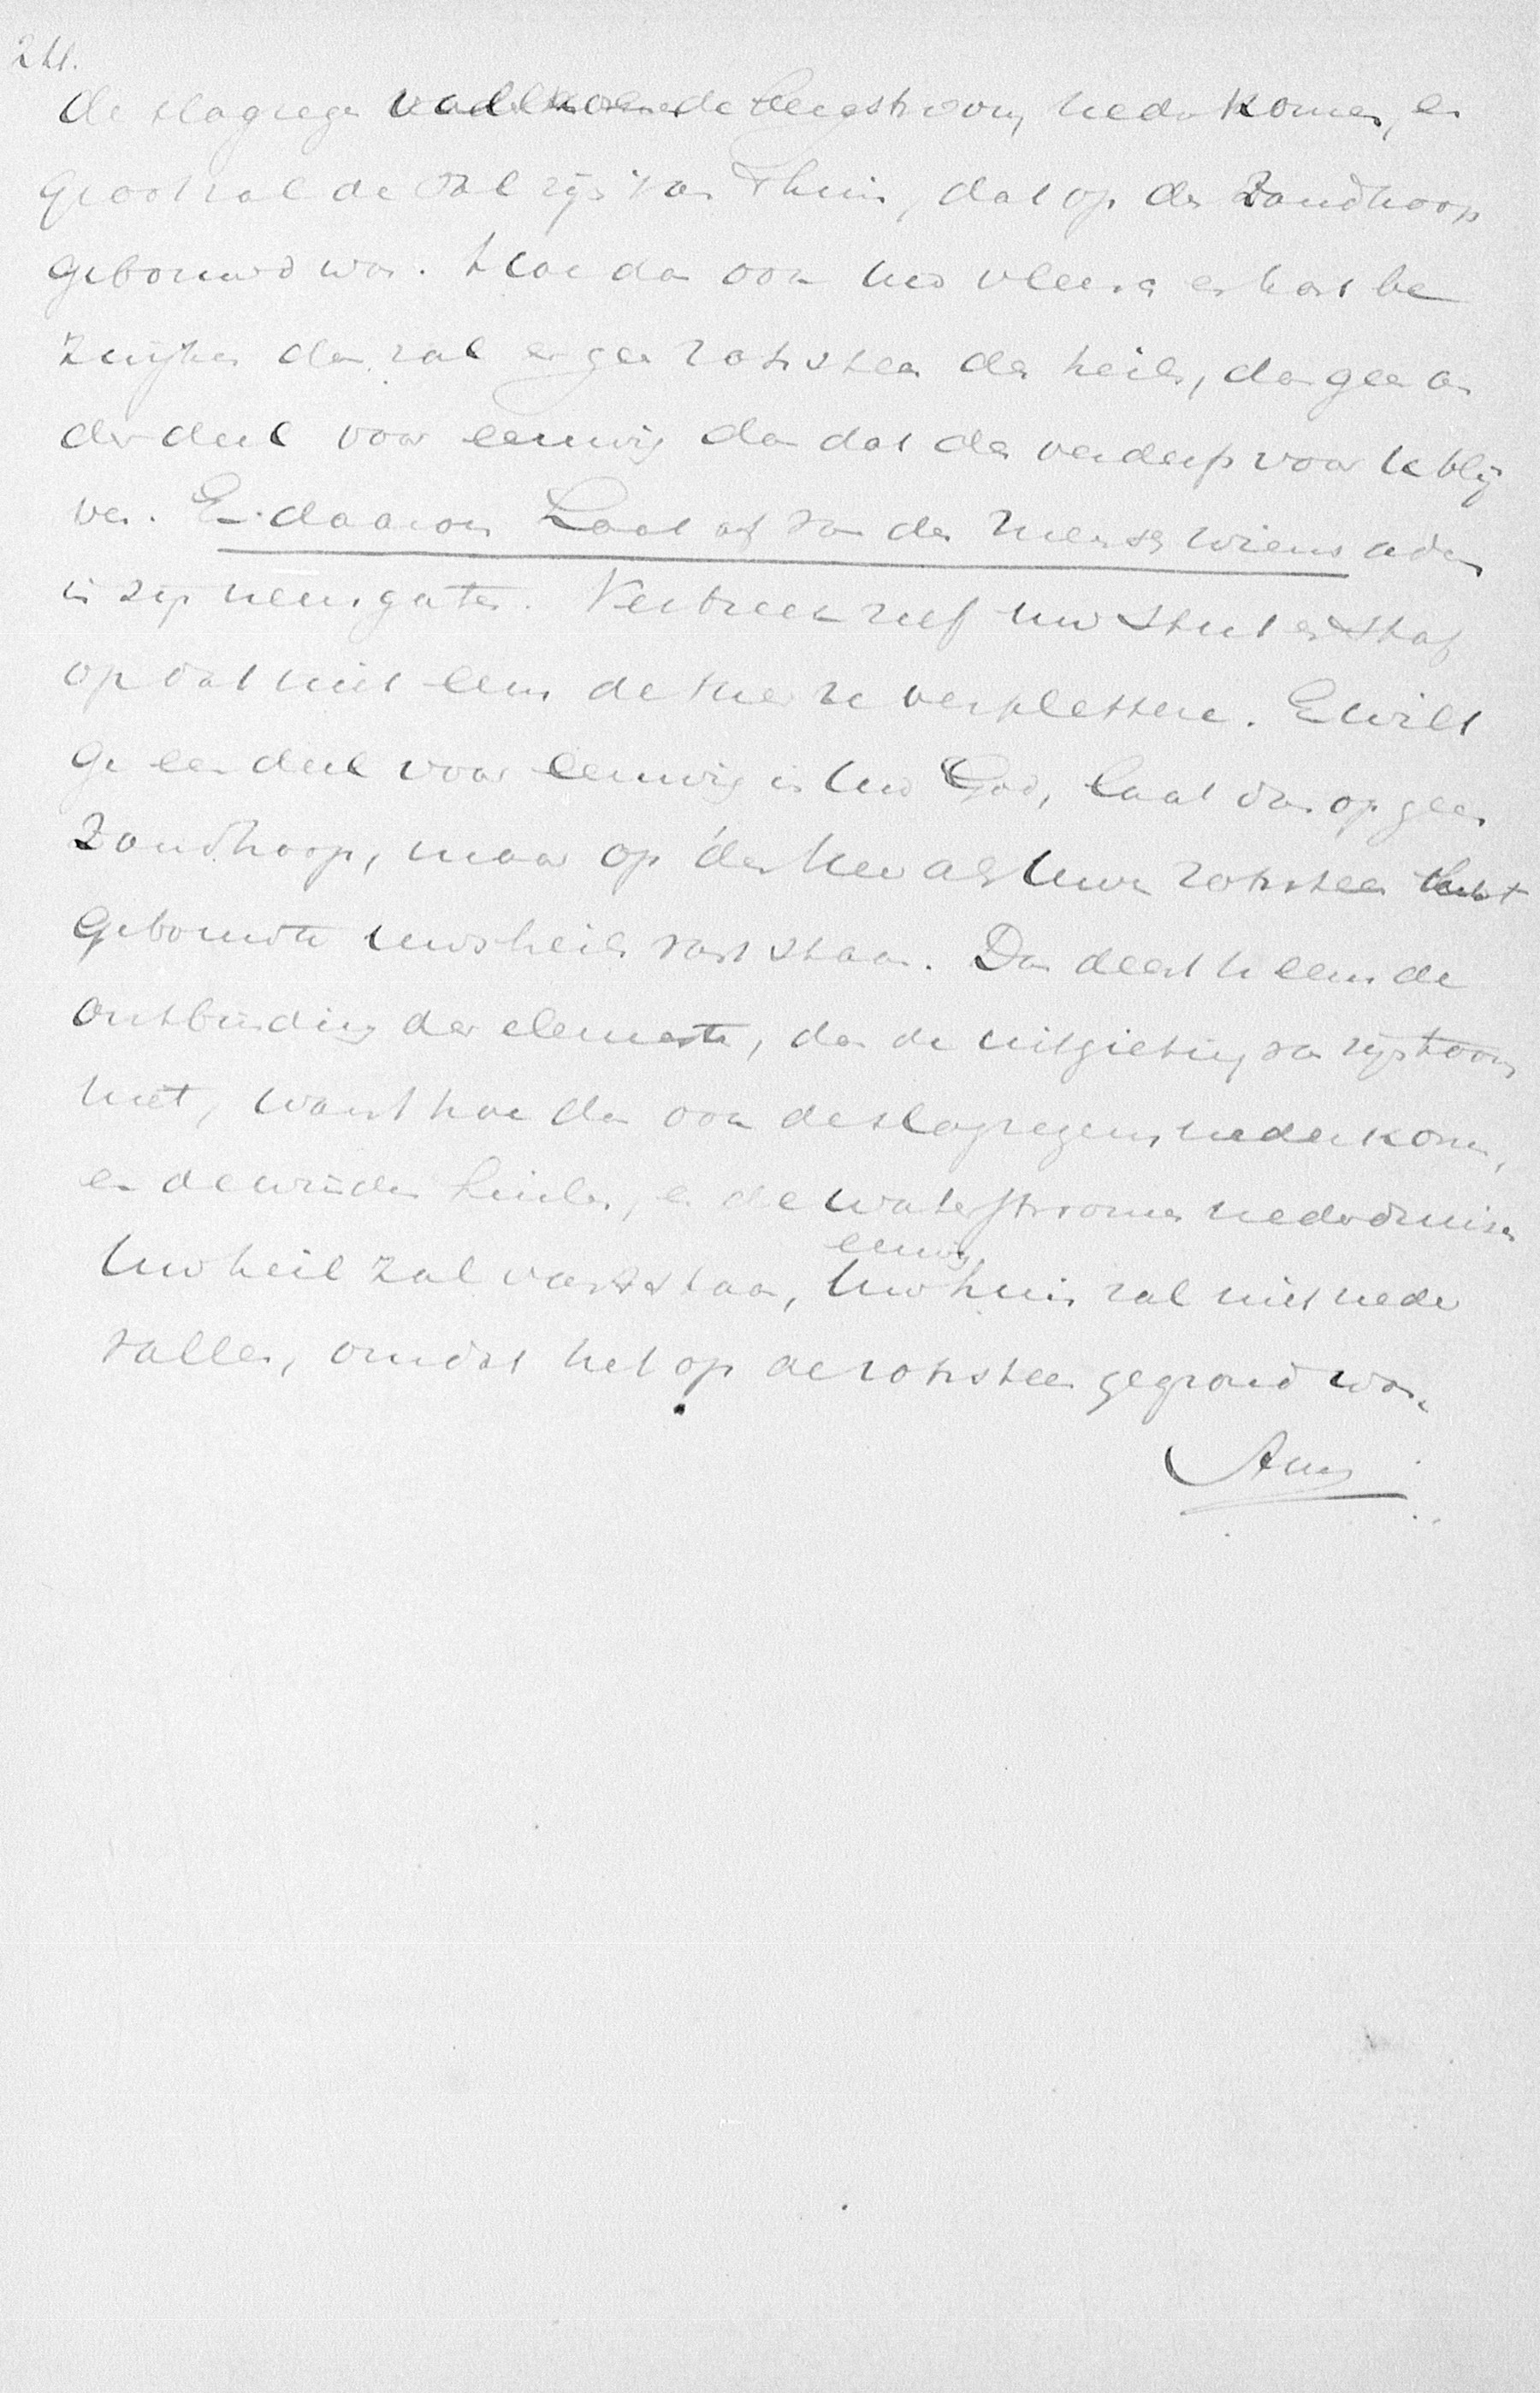 24.
de slagregen de bergstroom neder komen, en
groot zal de val zijn van 't huis, dat op den zandhoop
gebouwd was. Hoe dan ook uw vleesch en hart be
zwijken dan zal er geen rotssteen des heils, dan geen an
der deel voor eeuwig dan dat des verderfs voor u blij
ven. En daarom Laat af van den mensch wiens adem
in zijn neusgaten. Verbreek zelf uw stut en staf
opdat niet eens de Heer ze verplettere. En wilt
ge een deel voor eeuwig in uw God, laat dan op geen
Zandhoop, maar op den Heer als Uwen rotssteen het
gebouwte uws heils vast staan. Dan deert u eens de
ontbinding der elementen, dan de uitgieting van zijn toorn
niet, want hoe dan ook de slagregens nederkomen,
en de winden huilen, en de waterstroomen nederdruisen
Uw heil zal vaststaan, Uw huis zal niet eeuwig neder
vallen, omdat het op de rotssteen gegrond was.
Amen